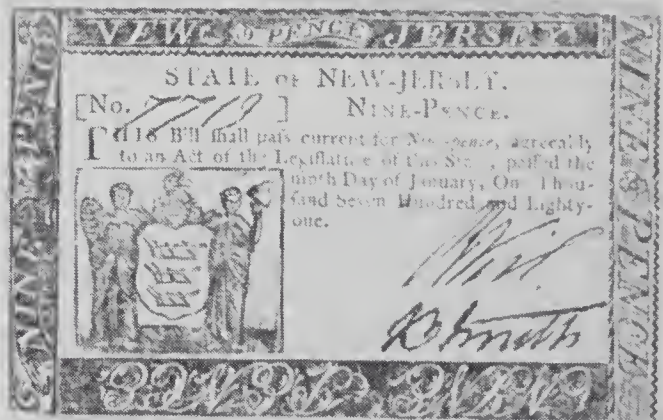 NEW 9 PENCE JERSEY
STATE OF NEW-JERSEY.
[No. 7719 ] NINE-PENCE.
THIS Bill ſhall paſs current for Nine-pence, agreeably
to an Act of the Legiſlature of this State, paſſed the
ninth Day of January, One Thou-
ſand Seven Hundred and Eighty-
one.
D Smith
NINE PENCE
NINE PENCE